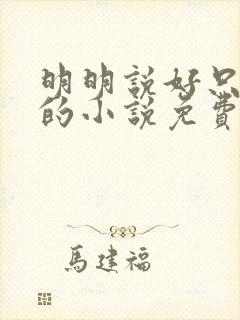 明明說好只
的小說免費
馬建福